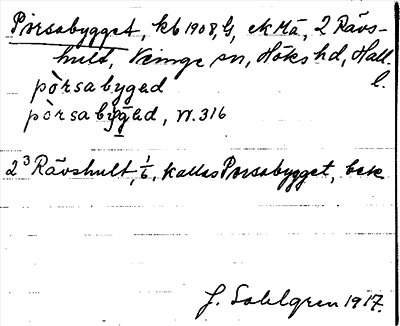 Porsabygget, kb 1908, G, ek Mä, 2 Rävs-
hult, Veinge sn, Höks hd, Hall.
l.
pòrsabyged
pòrsabyged, vr. 316
2³ Rävshult, 1/6, kallas Porsabygget, bek
J. Sahlgren 1917.